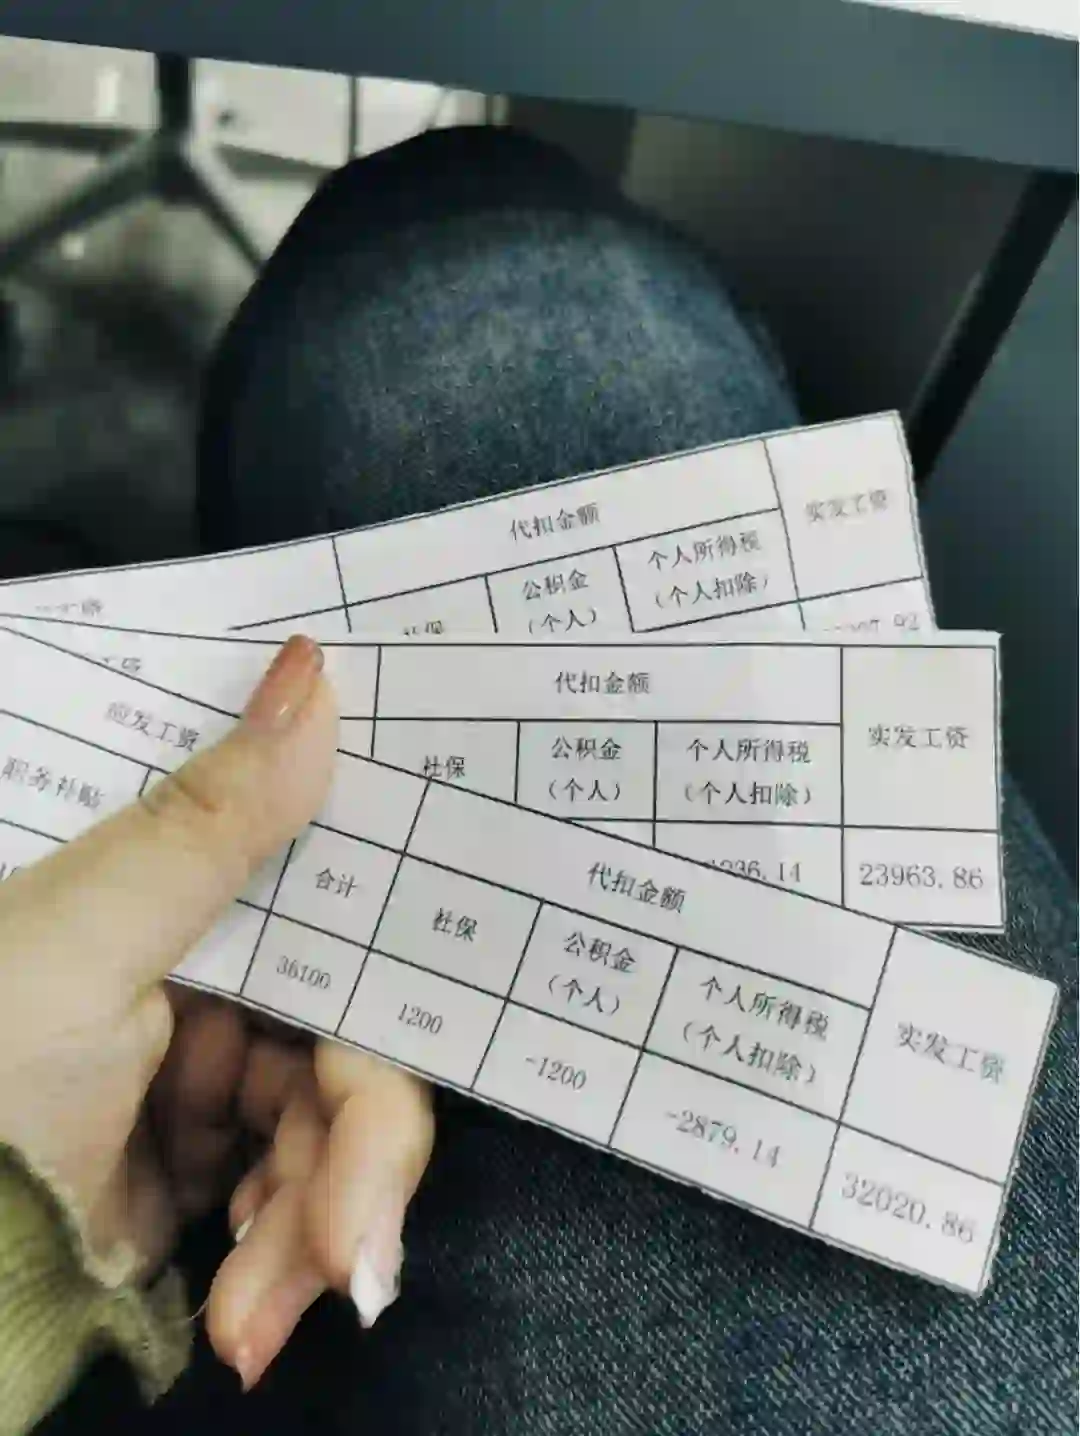 代扣金额
实发工资
公积金
(个人)
个人所得税
(个人扣除)
社保
代扣金额
实发工资
社保
公积金
(个人)
个人所得税
(个人扣除)
23963.86
应发工资
职务补贴
合计
代扣金额
社保
公积金
(个人)
个人所得税
(个人扣除)
实发工资
36100
1200
-1200
-2879.14
32020.86